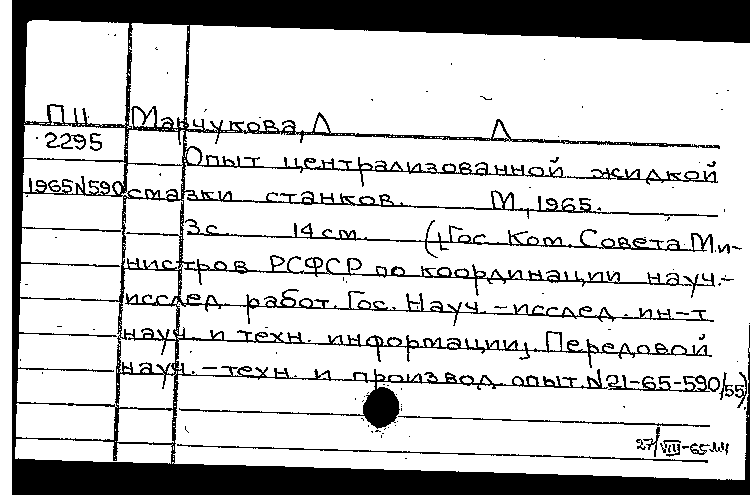 П11 Марчукова, Л Л
2295 Опыт централизованной жидкой
1965N590 смазки станков. М., 1965.
3с. 14 см. (Гос. Ком. Совета Ми-
нистров РСФСР по координации науч.-
исслед. работ. Гос. Науч.-исслед. ин-т
науч. и техн. информации. Передовой
науч.-техн. и производ. опыт. N21-65-590/55)
27/VIII-65